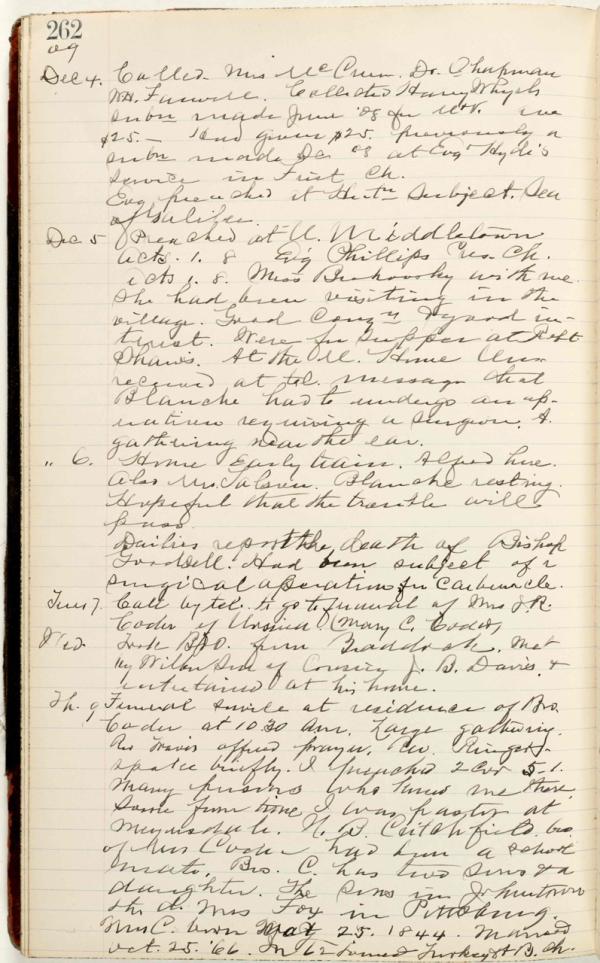 262
09
Dec 4. Called. Mis McCrum. Dr. Chapman
W.H. Farwell. Collected Harry
subn made June '08 for
$25.— Had given $25. previously a
subn made Dec 08 at Evg Hyde's
service in First Ch.
Evg preached at Subject. Sea
of
Dec 5 Preached at U. Middletown
Acts. 1. 8 Evg Phillips Pres. Ch.
Acts 1. 8. Miss with me.
She had been visiting in the
village. Good Congn & good in-
terest. Were for supper at Robt
Shaw's. At the M. Home
received at tel. message that
Blanche had to undergo an op-
eration requiring a surgeon. A
gathering near the ear.
" 6. Home Early train. Alfred here.
Also Mrs. Blanche resting.
Hopeful that the trouble will
pass.
Dailies report the death of Bishop
Goodsell. Had been subject of a
surgical operation for Carbuncle.
Tues 7. Call by tel. to go to funeral of Mrs J.R.
Coder of Ursina. (Mary C. Coder)
Wed. Took B&O. from Braddock. Met
by Wilbur Son of J. B. Davies, &
entertained at his home.
Th. 9 Funeral service at residence of Bro.
Coder at 10.30 Am. Large gathering.
Rev Travis offered prayer. Rev. Ringer
spoke briefly. I preached 2 Cor 5-1.
Many persons who knew me there,
Some from time I was pastor at
Meyersdale. N. B. Critchfield. bro.
of Mrs Coder had been a school
mate. Bro. C. has two sons & a
daughter. The sons in Johnstown
the d. Mrs Fox in Pittsburg.
Mrs C. born May 25. 1844. Married
Oct. 25. '66. In '62 joined B. Ch.